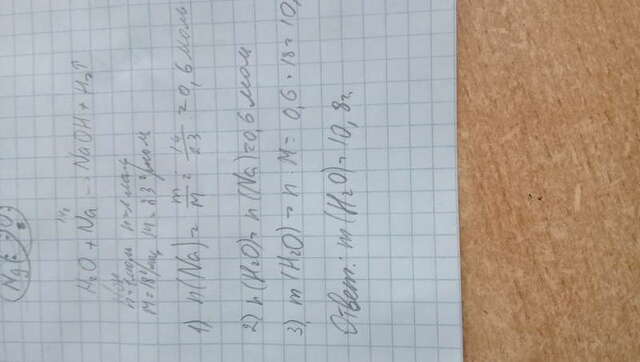 14г
H₂O + Na → NaOH + H₂↑
HOH
n=1моль n=1моль
M=18г/моль M=23г/моль
1) n(Na)= m/M = 14/23 = 0,6 моль
2) n(H₂O)= n(Na)=0,6 моль
3) m(H₂O) = n · M = 0,6 · 18 = 10,
Ответ: m(H₂O)=10,8г